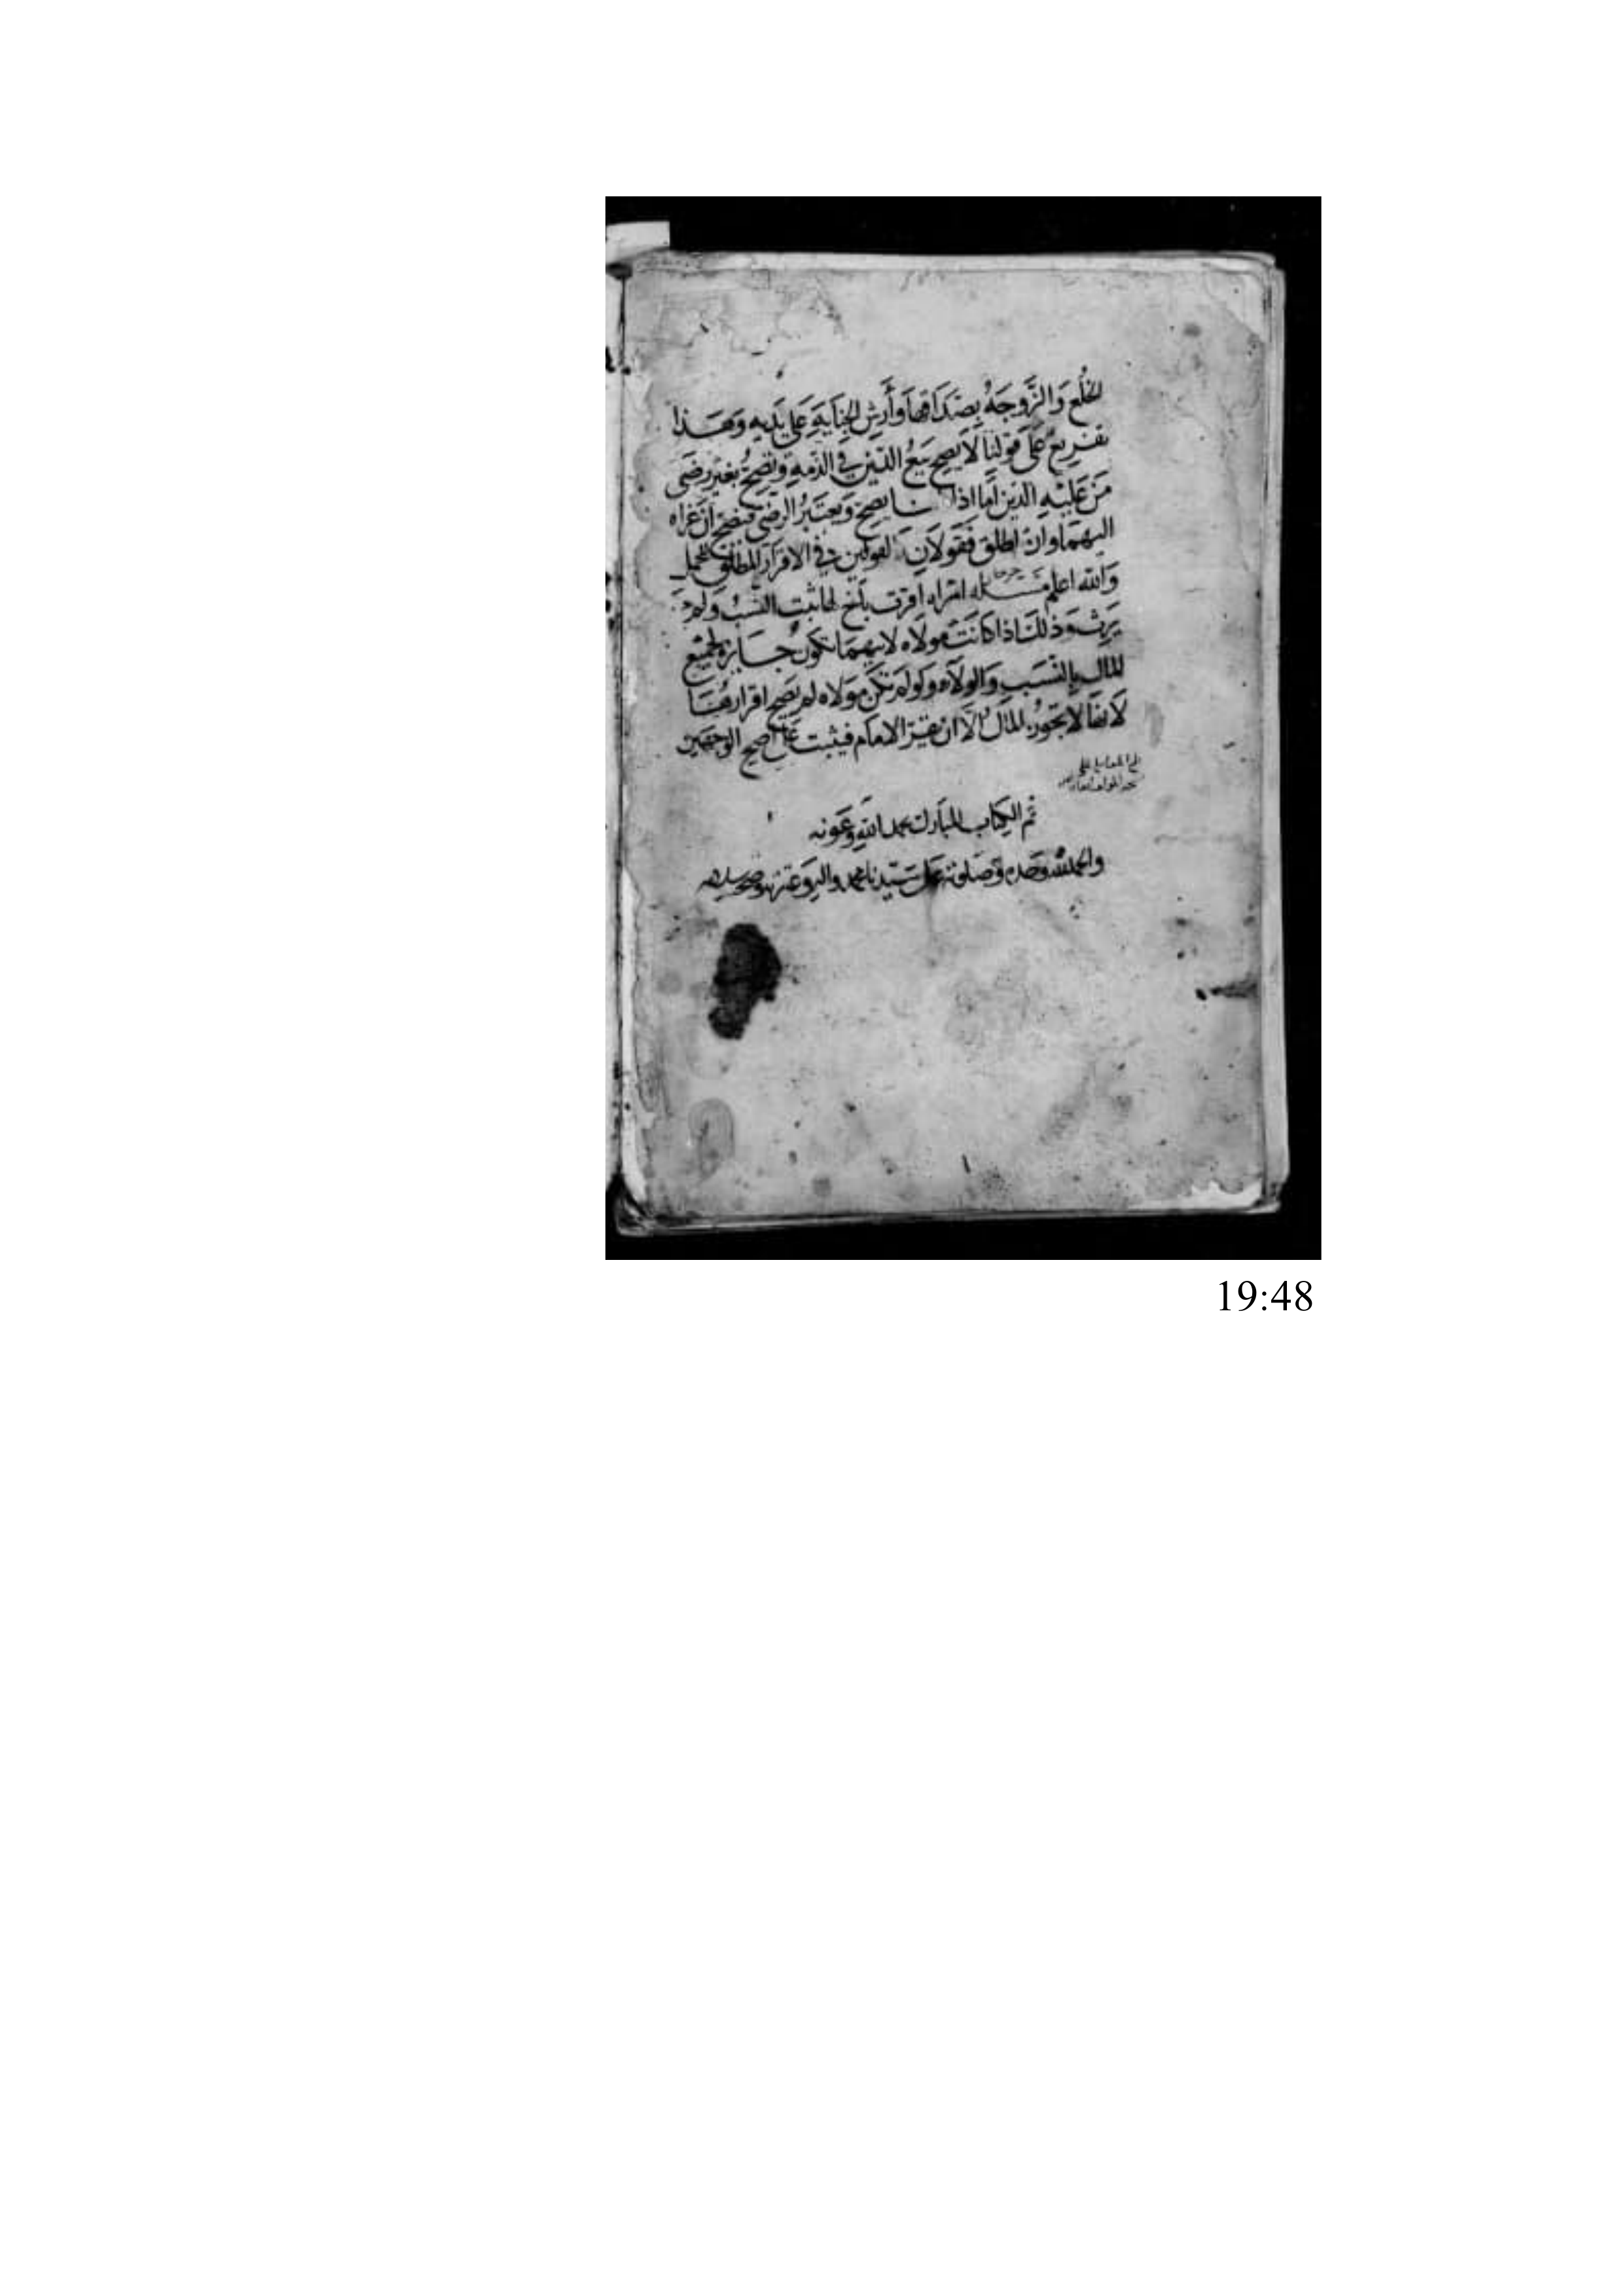 الخلع والزوجه بصداقها وأرش الجنايه على يديه وهذا
تفريع على قولنا لا يصح بيع الدين في الذمه ويصح بغير رضى
من عليه الدين اما اذا يصح ويعتبر الرضى فيصح ان
اليهما وان اطلق فقولان القولين في الاقرار المطلق للحمل
والله اعلم مسله امراه اقرت باخ لها ثبت النسب ولم
يرث وذلك اذا كانت مولاه لابيهما تكون حايزه لجميع
المال بالنسب والولاء ولو لم تكن مولاه لم يصح اقرارها
لانها لا تحوز المال الا ان يقر الامام فيثبت على اصح الوجهين
تم الكتاب المبارك بحمد الله وعونه
والحمد لله وحده وصلوته على سيدنا محمد واله وعترته
19:48